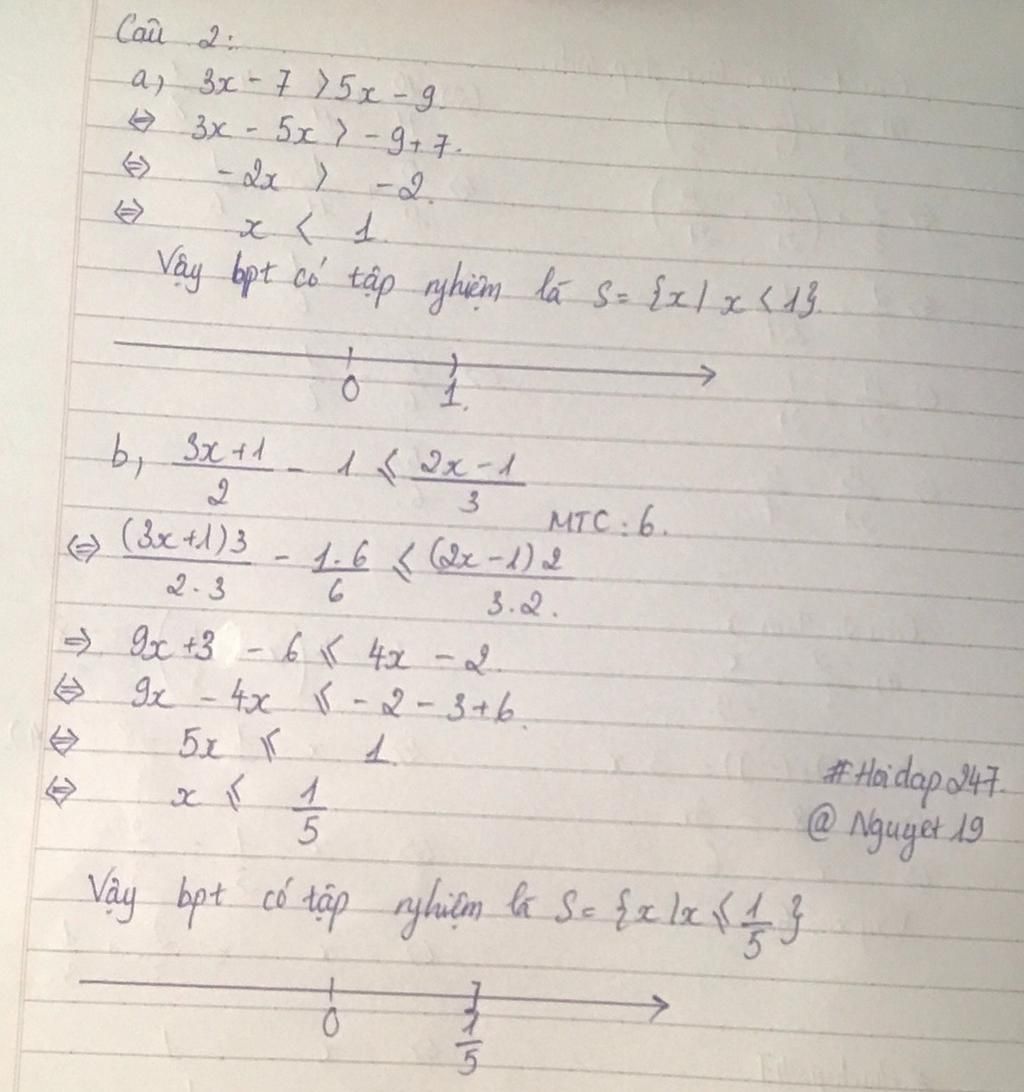 Câu 2:
a, 3x - 7 > 5x - 9.
⇔ 3x - 5x > -9+7.
⇔ -2x > -2.
⇔ x < 1.
Vậy bpt có tập nghiệm là S = {x/ x < 1}.
0 1.
b, (3x+1)/2 - 1 ≤ (2x-1)/3
MTC: 6.
⇔ (3x+1)3/2.3 - 1.6/6 ≤ (2x-1)2/3.2.
⇒ 9x+3 - 6 ≤ 4x - 2.
⇔ 9x - 4x ≤ -2-3+6.
⇔ 5x ≤ 1.
⇔ x ≤ 1/5
#Hoidap247.
@ Nguyet19
Vậy bpt có tập nghiệm là S = {x/x ≤ 1/5}
0 1/5